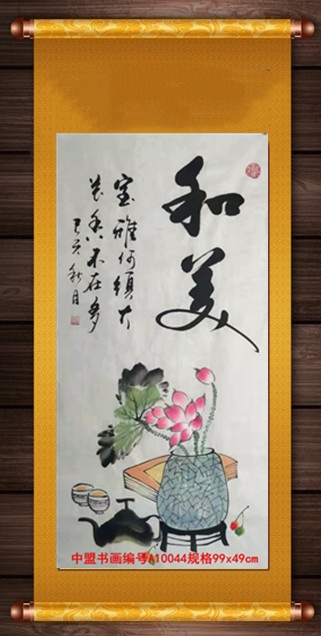 和美
室雅何须大
花香不在多
己亥秋月
中盟书画编号A10044规格99x49cm